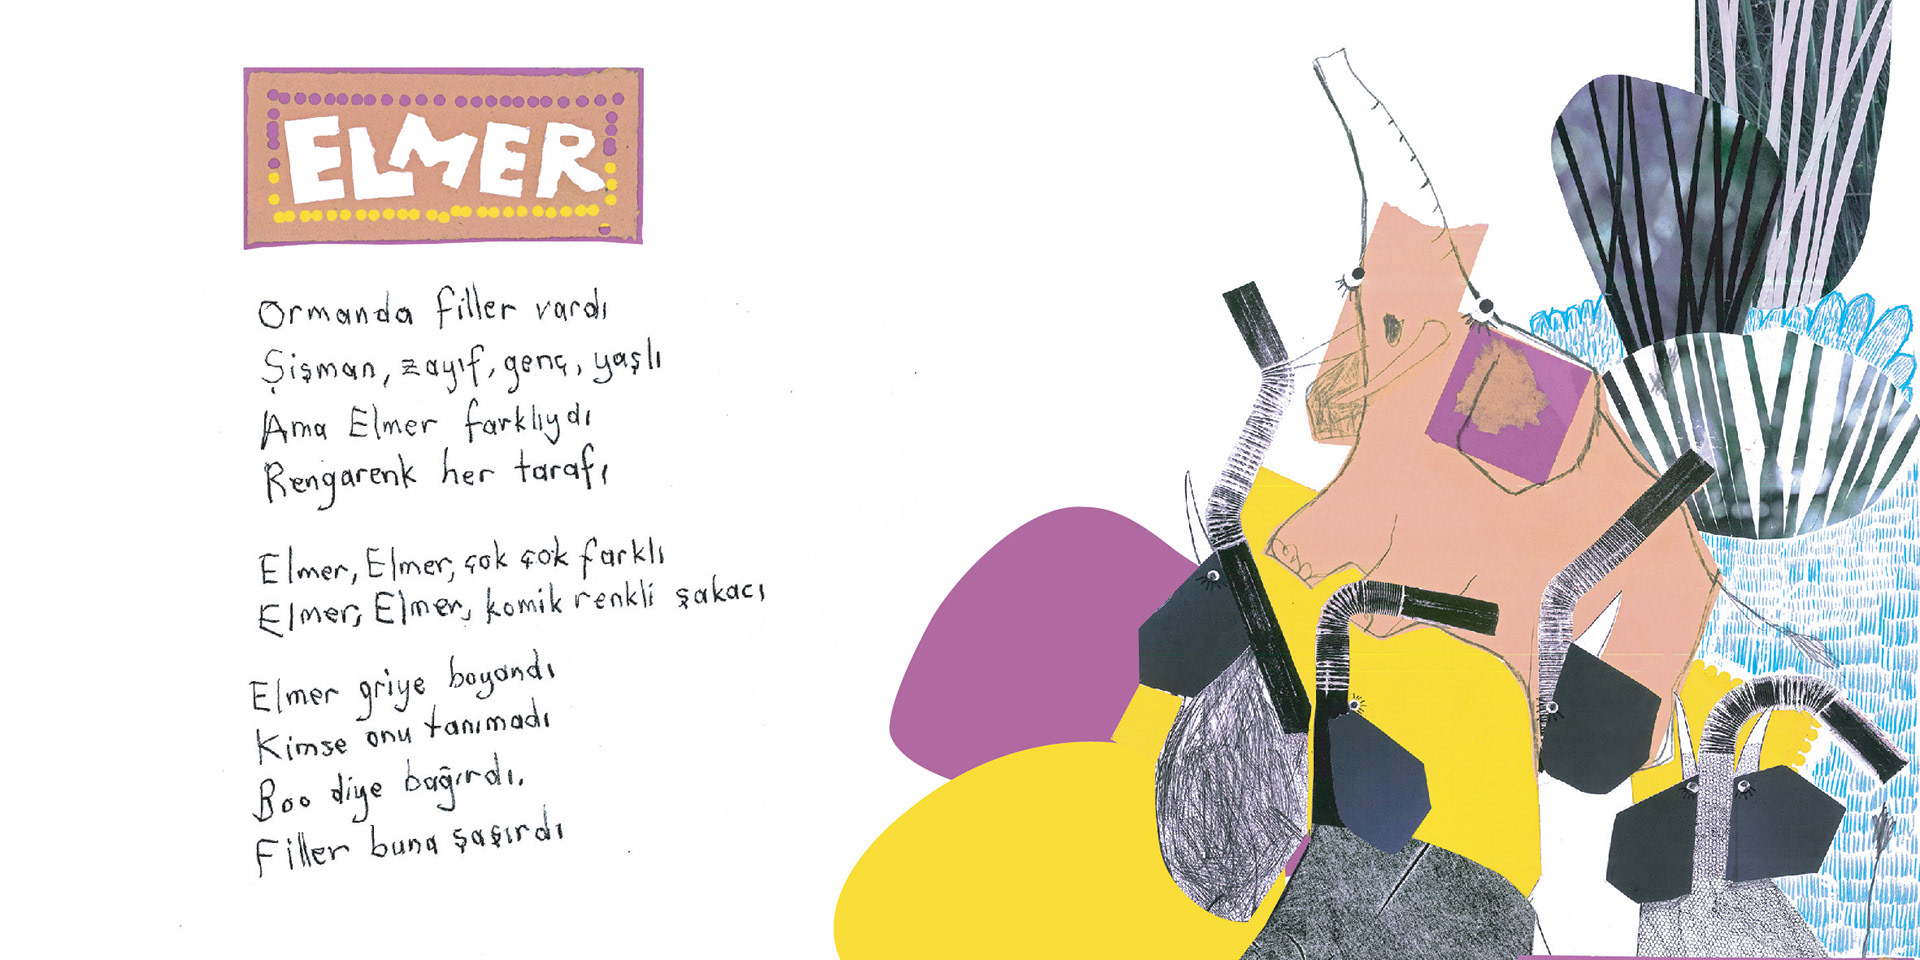 ELMER
Ormanda filler vardı
Şişman, zayıf, genç, yaşlı
Ama Elmer farklıydı
Rengarenk her tarafı
Elmer, Elmer, çok çok farklı
Elmer, Elmer, komik renkli şakacı
Elmer griye boyandı
Kimse onu tanımadı
Boo diye bağırdı.
Filler buna şaşırdı